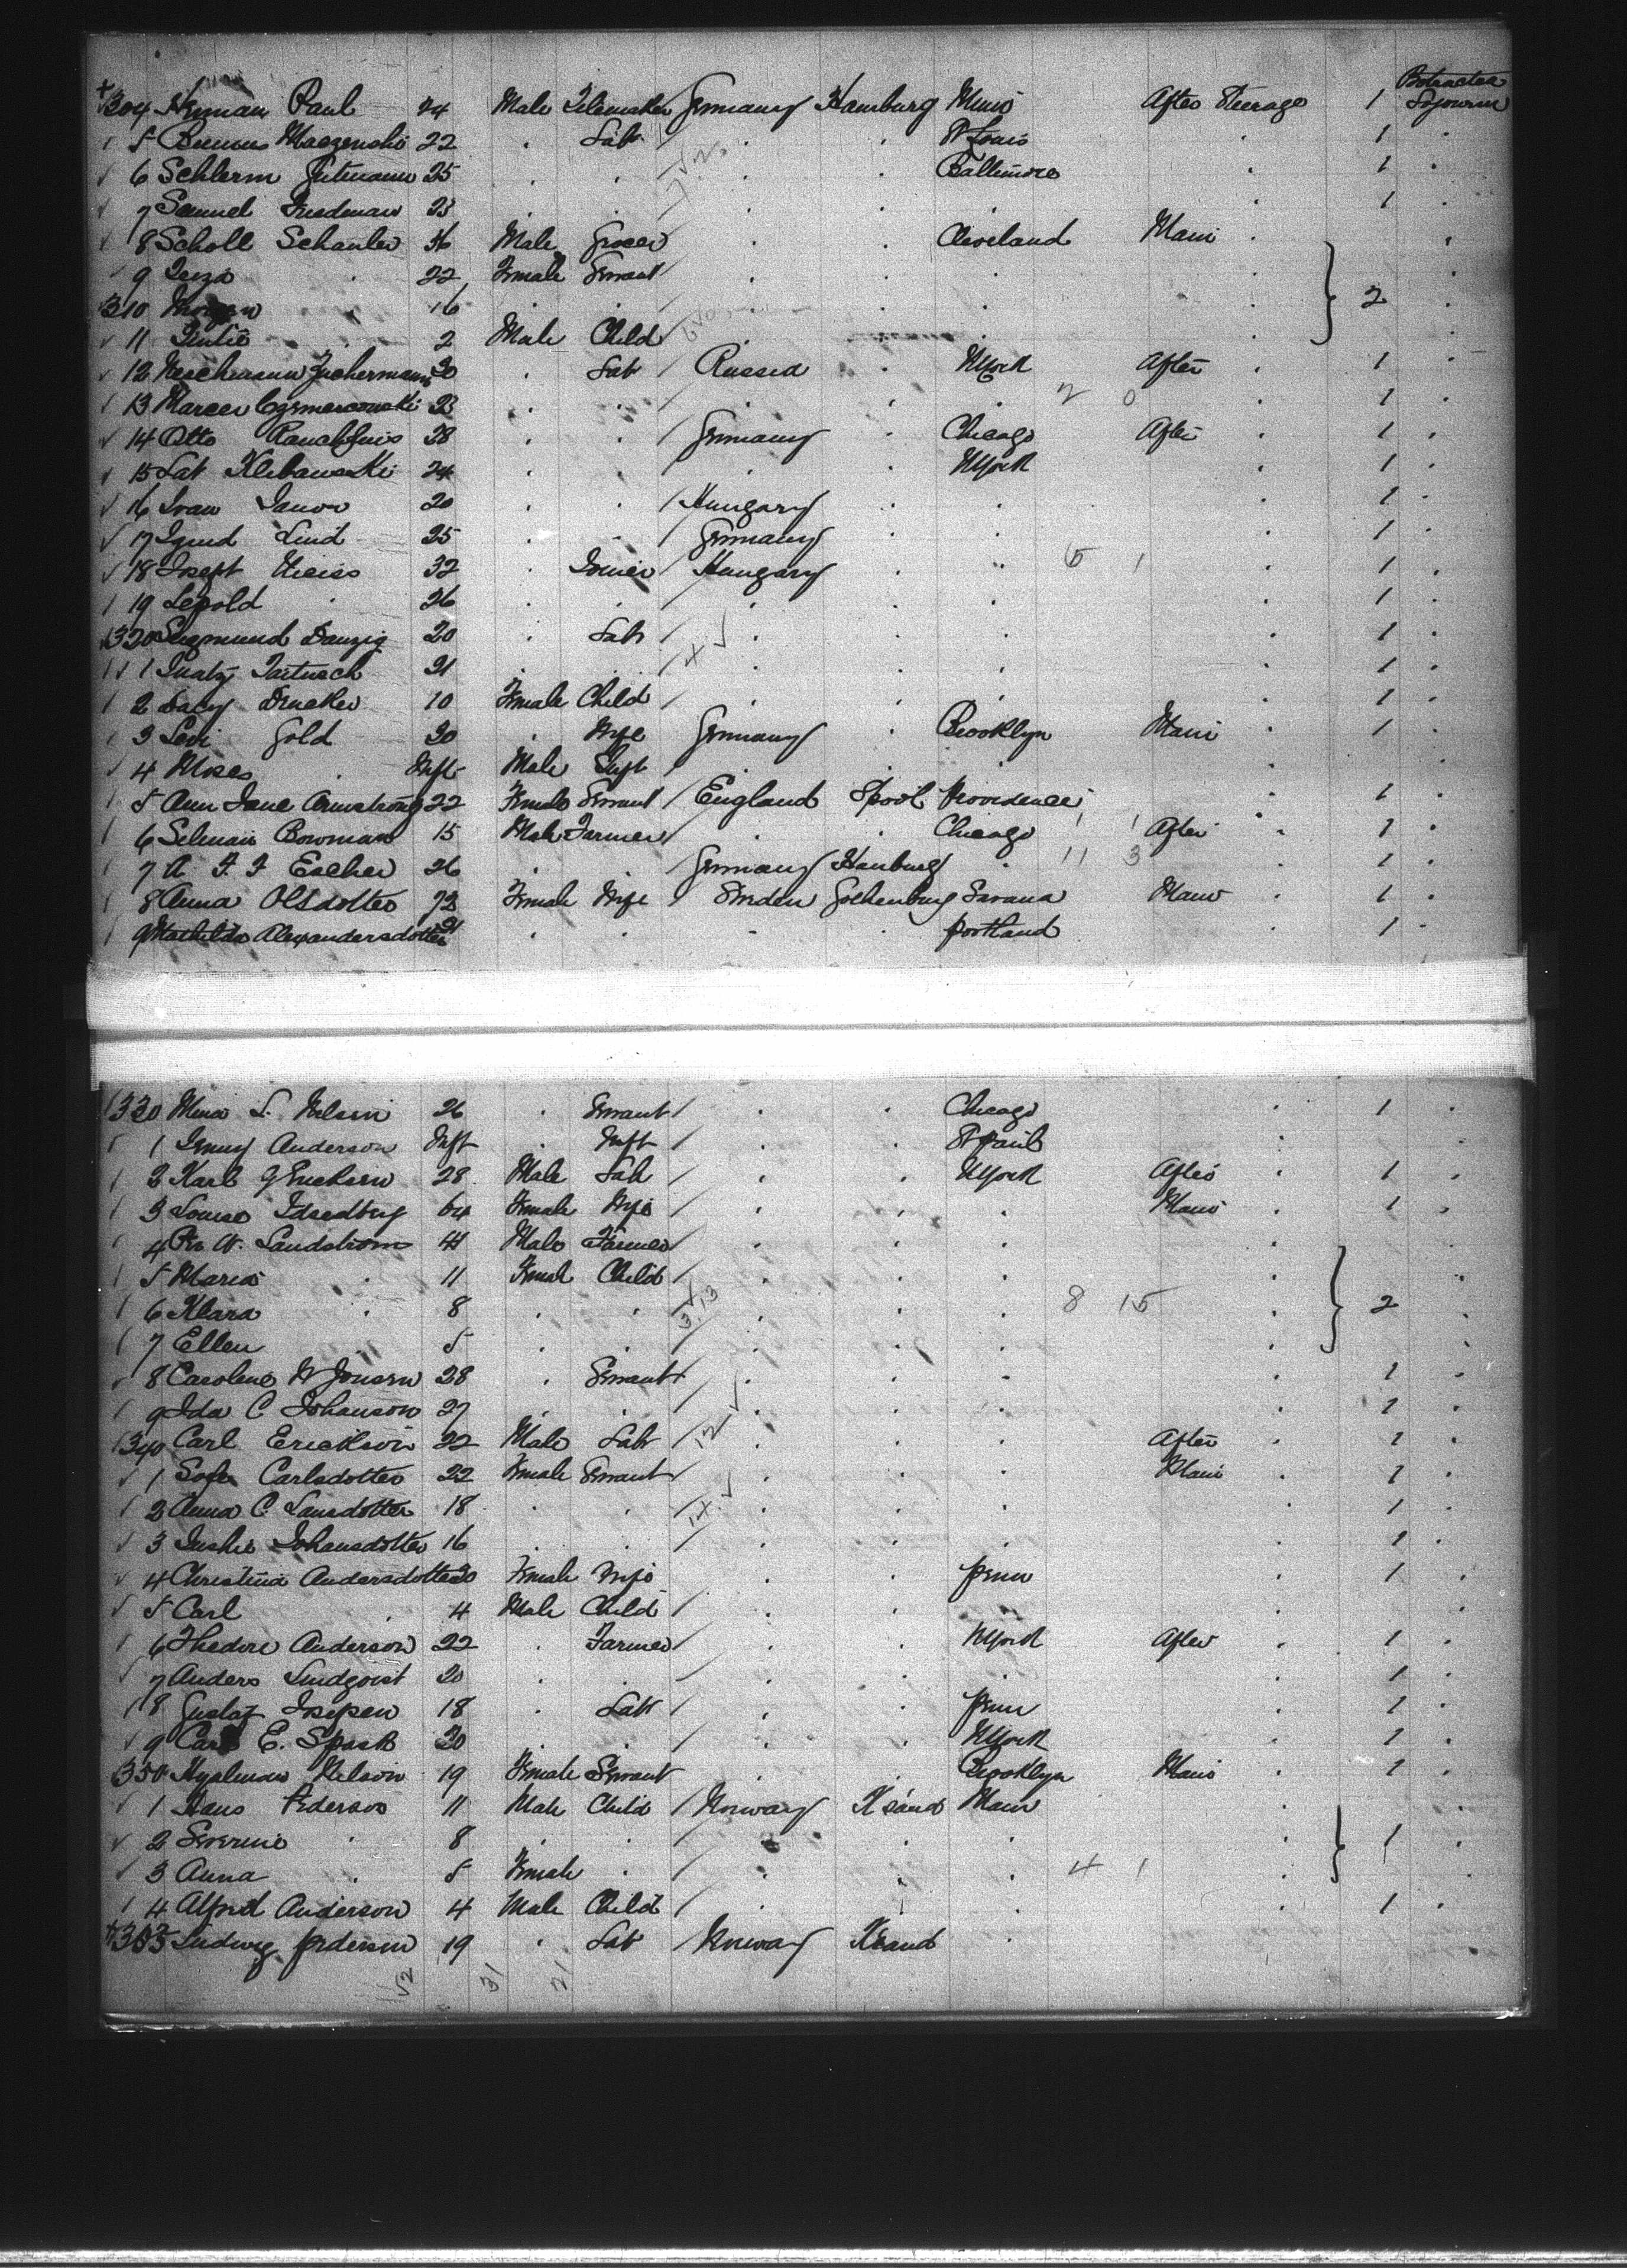 304 Herman Paul 24 Male Germany Hamburg After Steerage 1 Protracted Sojourn
5 22 " Lab " " St Louis " 1 "
6 Schlerm Gutmann 25 " " " " Baltimore " 1 "
7 Samuel Friedman 23 " " " " " " 1 "
8 Scholl Schanler 36 Male Grocer " " Cleveland Main " "
9 22 Female Servant " " " " "
310 16 " " " " " " 2 "
11 Julie " 2 Male Child " " " " "
12 30 " Lab Russia " NYork After " 1 "
13 Marcer 23 " " " " " 2 0 " 1 "
14 Otto Rauchfuis 28 " " Germany " Chicago After " 1 "
15 Klibanski 24 " " " " NYork " 1 "
16 Ivan Janov 20 " " Hungary " " " 1 "
17 Lind 25 " " Germany " " " 1 "
18 Josept Weiss 32 " Hungary " " 5 1 " 1 "
19 Lepold " 26 " " " " " " 1 "
320 Sugmund Danzig 20 " Lab " " " " 1 "
1 21 " " " " " " 1 "
2 Drucker 10 Female Child " " " " 1 "
3 Levi Gold 30 " Wife Germany " Brooklyn Main " 1 "
4 Moses " Inft Male Inft " " " " "
5 Ann Jane Armstrong 22 Female Servant England Lpool Providence " 1 "
6 Selmair Bowman 15 Male Farmer " " Chicago 1 1 After " 1 "
7 A F. F 26 " " Germany Hamburg " 11 3 " 1 "
8 Anna Olsdotter 73 Female Wife Sweden Gothenburg Savana Main " 1 "
9 Mathilda Alexandersdotter 21 " " " " Portland " 1 "
330 Mina S. Nelson 26 " Servant " " Chicago " 1 "
1 Jenny Anderson Inft " Inft " " St Paul " "
2 Karl G Erickson 28 Male Lab " " NYork After " 1 "
3 Louise 64 Female Wife " " " Main " 1 "
4 Per W. Landstrom 41 Male Farmer " " " " "
5 Maria " 11 Female Child " " " " "
6 Klara " 8 " " 3.13 " " " 8 15 " 2 "
7 Ellen " 5 " " " " " " "
8 Caroline W Jonson 28 " Servant " " " " 1 "
9 Ida C Johanson 27 " " " " " " 1 "
340 Carl Erickson 22 Male Lab 12 " " " After " 1 "
1 Sofia Carlsdotter 22 Female Servant " " " Main " 1 "
2 Anna C Larsdotter 18 " " 14 " " " " 1 "
3 Johansdotter 16 " " " " " " 1 "
4 Christina Andersdotter 30 Female Wife " " Penn " 1 "
5 Carl " 4 Male Child " " " " "
6 Thedore Anderson 22 " Farmer " " NYork After " 1 "
7 Anders Lindqvist 20 " " " " " " 1 "
8 Gustaf Josepsen 18 " Lab " " Penn " 1 "
9 Carl E. Spask 30 " " " " NYork " 1 "
350 Hyalmar Nelson 19 Female Servant " " Brooklyn Main " 1 "
1 Hans Pederson 11 Male Child Norway Xsand " "
2 Severine " 8 " " " " " " 1 "
3 Anna " 5 Female " " " " 4 1 " "
4 Alfred Anderson 4 Male Child " " " " 1 "
Ludwig Pederson 19 " Lab Norway Xsand "
52 31 21